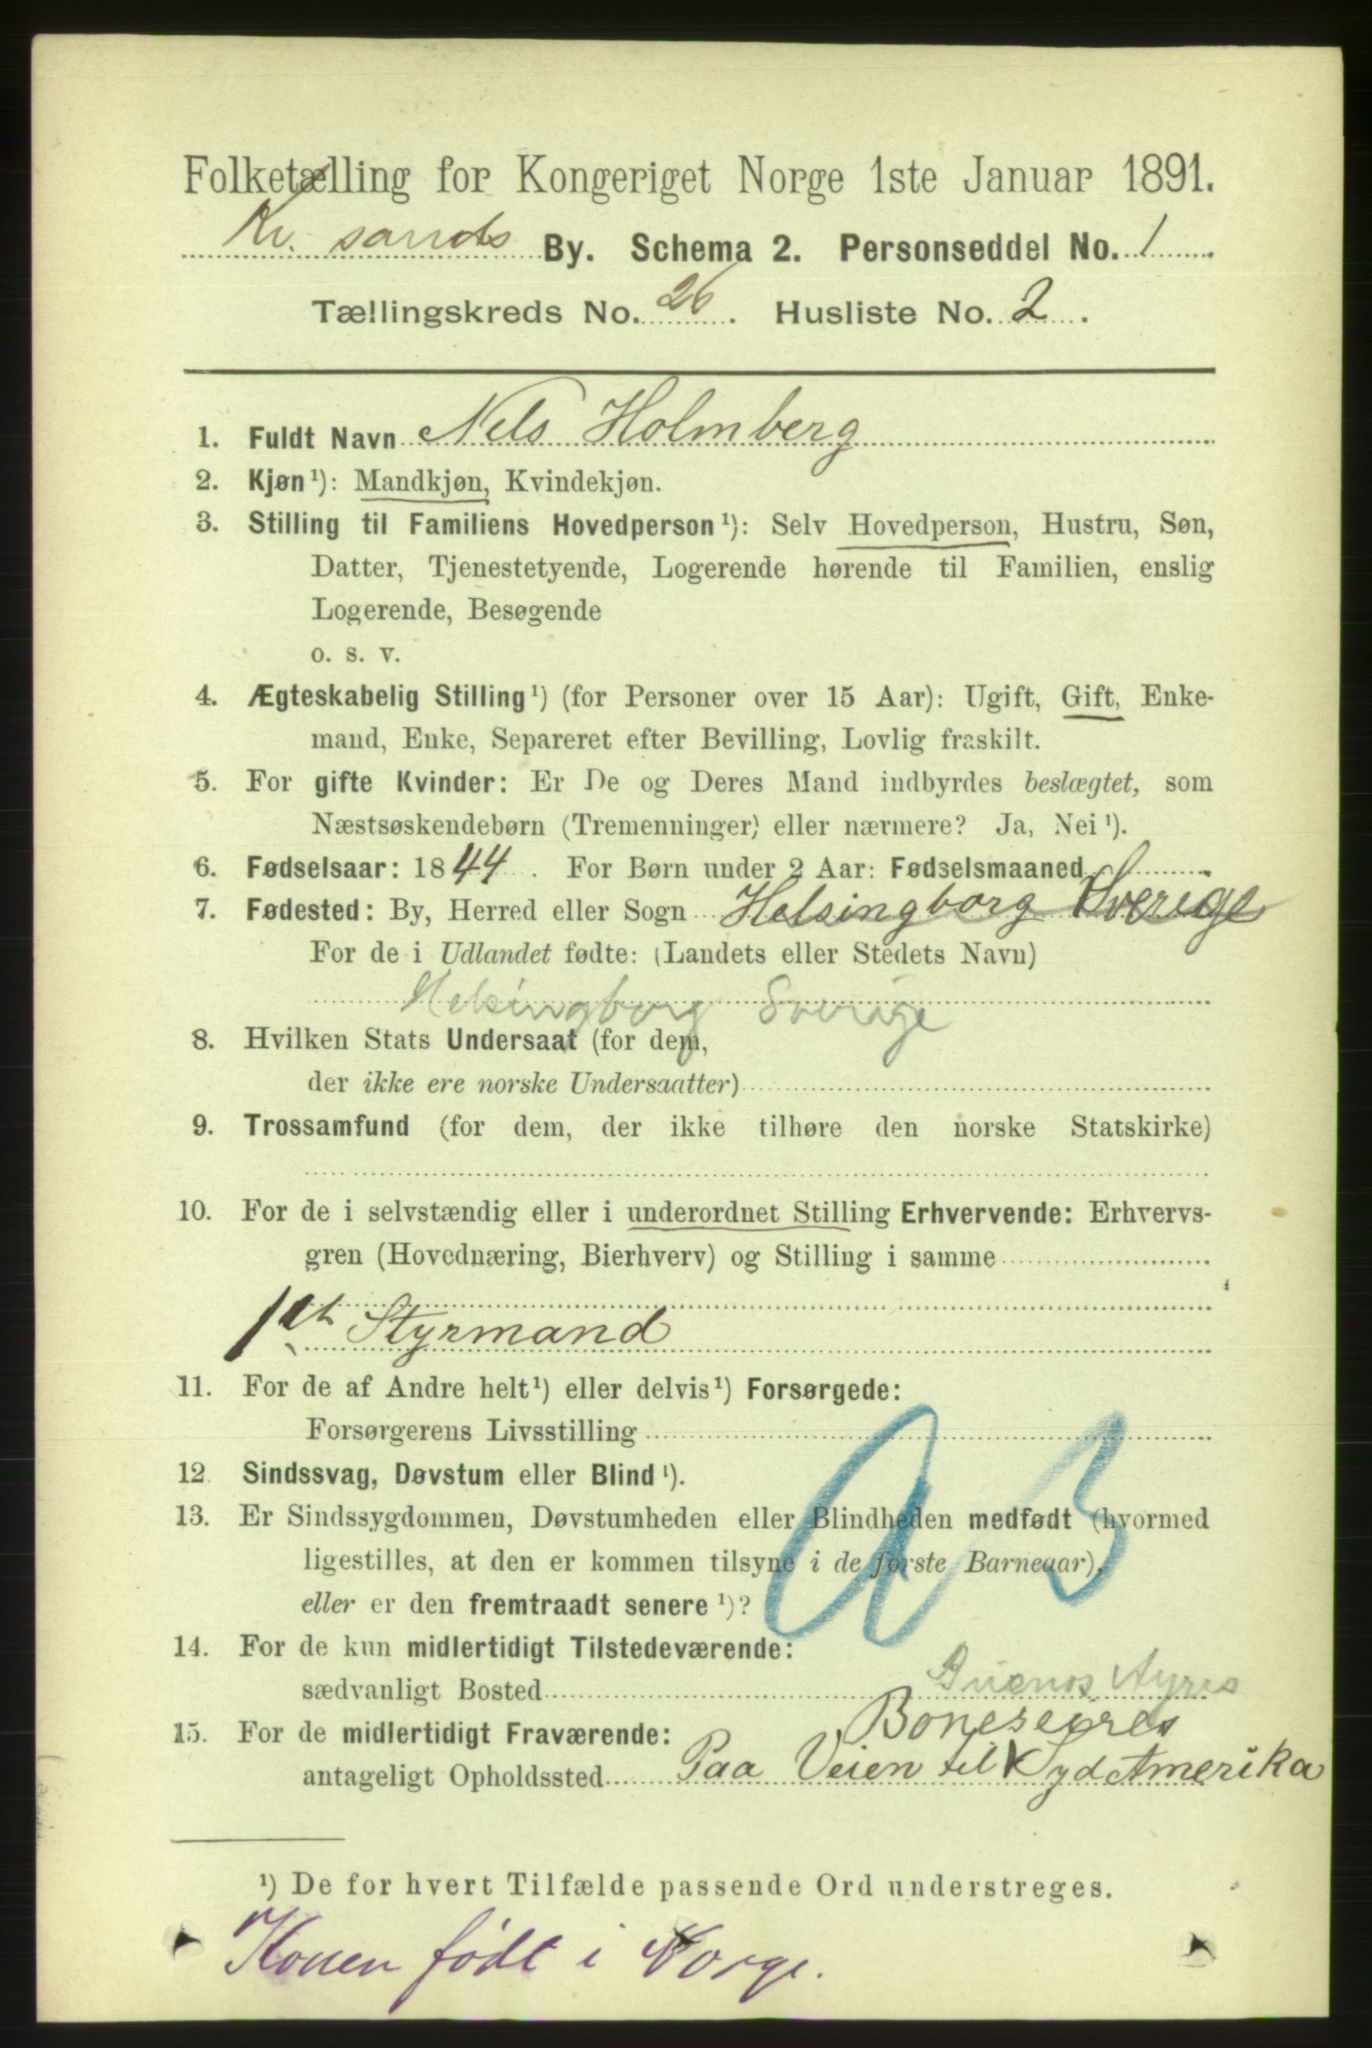 Folketælling for Kongeriget Norge 1ste Januar 1891.
Kr. sands By. Schema 2. Personseddel No. 1
Tællingskreds No. 26. Husliste No. 2.
1. Fuldt Navn Nels Holmberg
2. Kjøn¹): Mandkjøn, Kvindekjøn.
3. Stilling til Familiens Hovedperson¹): Selv Hovedperson, Hustru, Søn,
Datter, Tjenestetyende, Logerende hørende til Familien, enslig
Logerende, Besøgende
o. s. v.
4. Ægteskabelig Stilling¹) (for Personer over 15 Aar): Ugift, Gift, Enke-
mand, Enke, Separeret efter Bevilling, Lovlig fraskilt.
5. For gifte Kvinder: Er De og Deres Mand indbyrdes beslægtet, som
Næstsøskendebørn (Tremenninger) eller nærmere? Ja, Nei¹).
6. Fødselsaar: 1844. For Børn under 2 Aar: Fødselsmaaned
7. Fødested: By, Herred eller Sogn Helsingborg Sverige
For de i Udlandet fødte: (Landets eller Stedets Navn)
Helsingborg Sverige
8. Hvilken Stats Undersaat (for dem,
der ikke ere norske Undersaatter)
9. Trossamfund (for dem, der ikke tilhøre den norske Statskirke)
10. For de i selvstændig eller i underordnet Stilling Erhvervende: Erhvervs-
gren (Hovednæring, Bierhverv) og Stilling i samme
1st Styrmand
11. For de af Andre helt¹) eller delvis¹) Forsørgede:
Forsørgerens Livsstilling
12 Sindssvag, Døvstum eller Blind¹).
13. Er Sindssygdommen, Døvstumheden eller Blindheden medfødt (hvormed
ligestilles, at den er kommen tilsyne i de første Barneaar),
eller er den fremtraadt senere¹)?
14. For de kun midlertidigt Tilstedeværende:
sædvanligt Bosted
Buenos Ayres
15. For de midlertidigt Fraværende: Boneseyres
antageligt Opholdssted Paa Veien til Syd Amerika
¹) De for hvert Tilfælde passende Ord understreges.
Konen født i Norge.